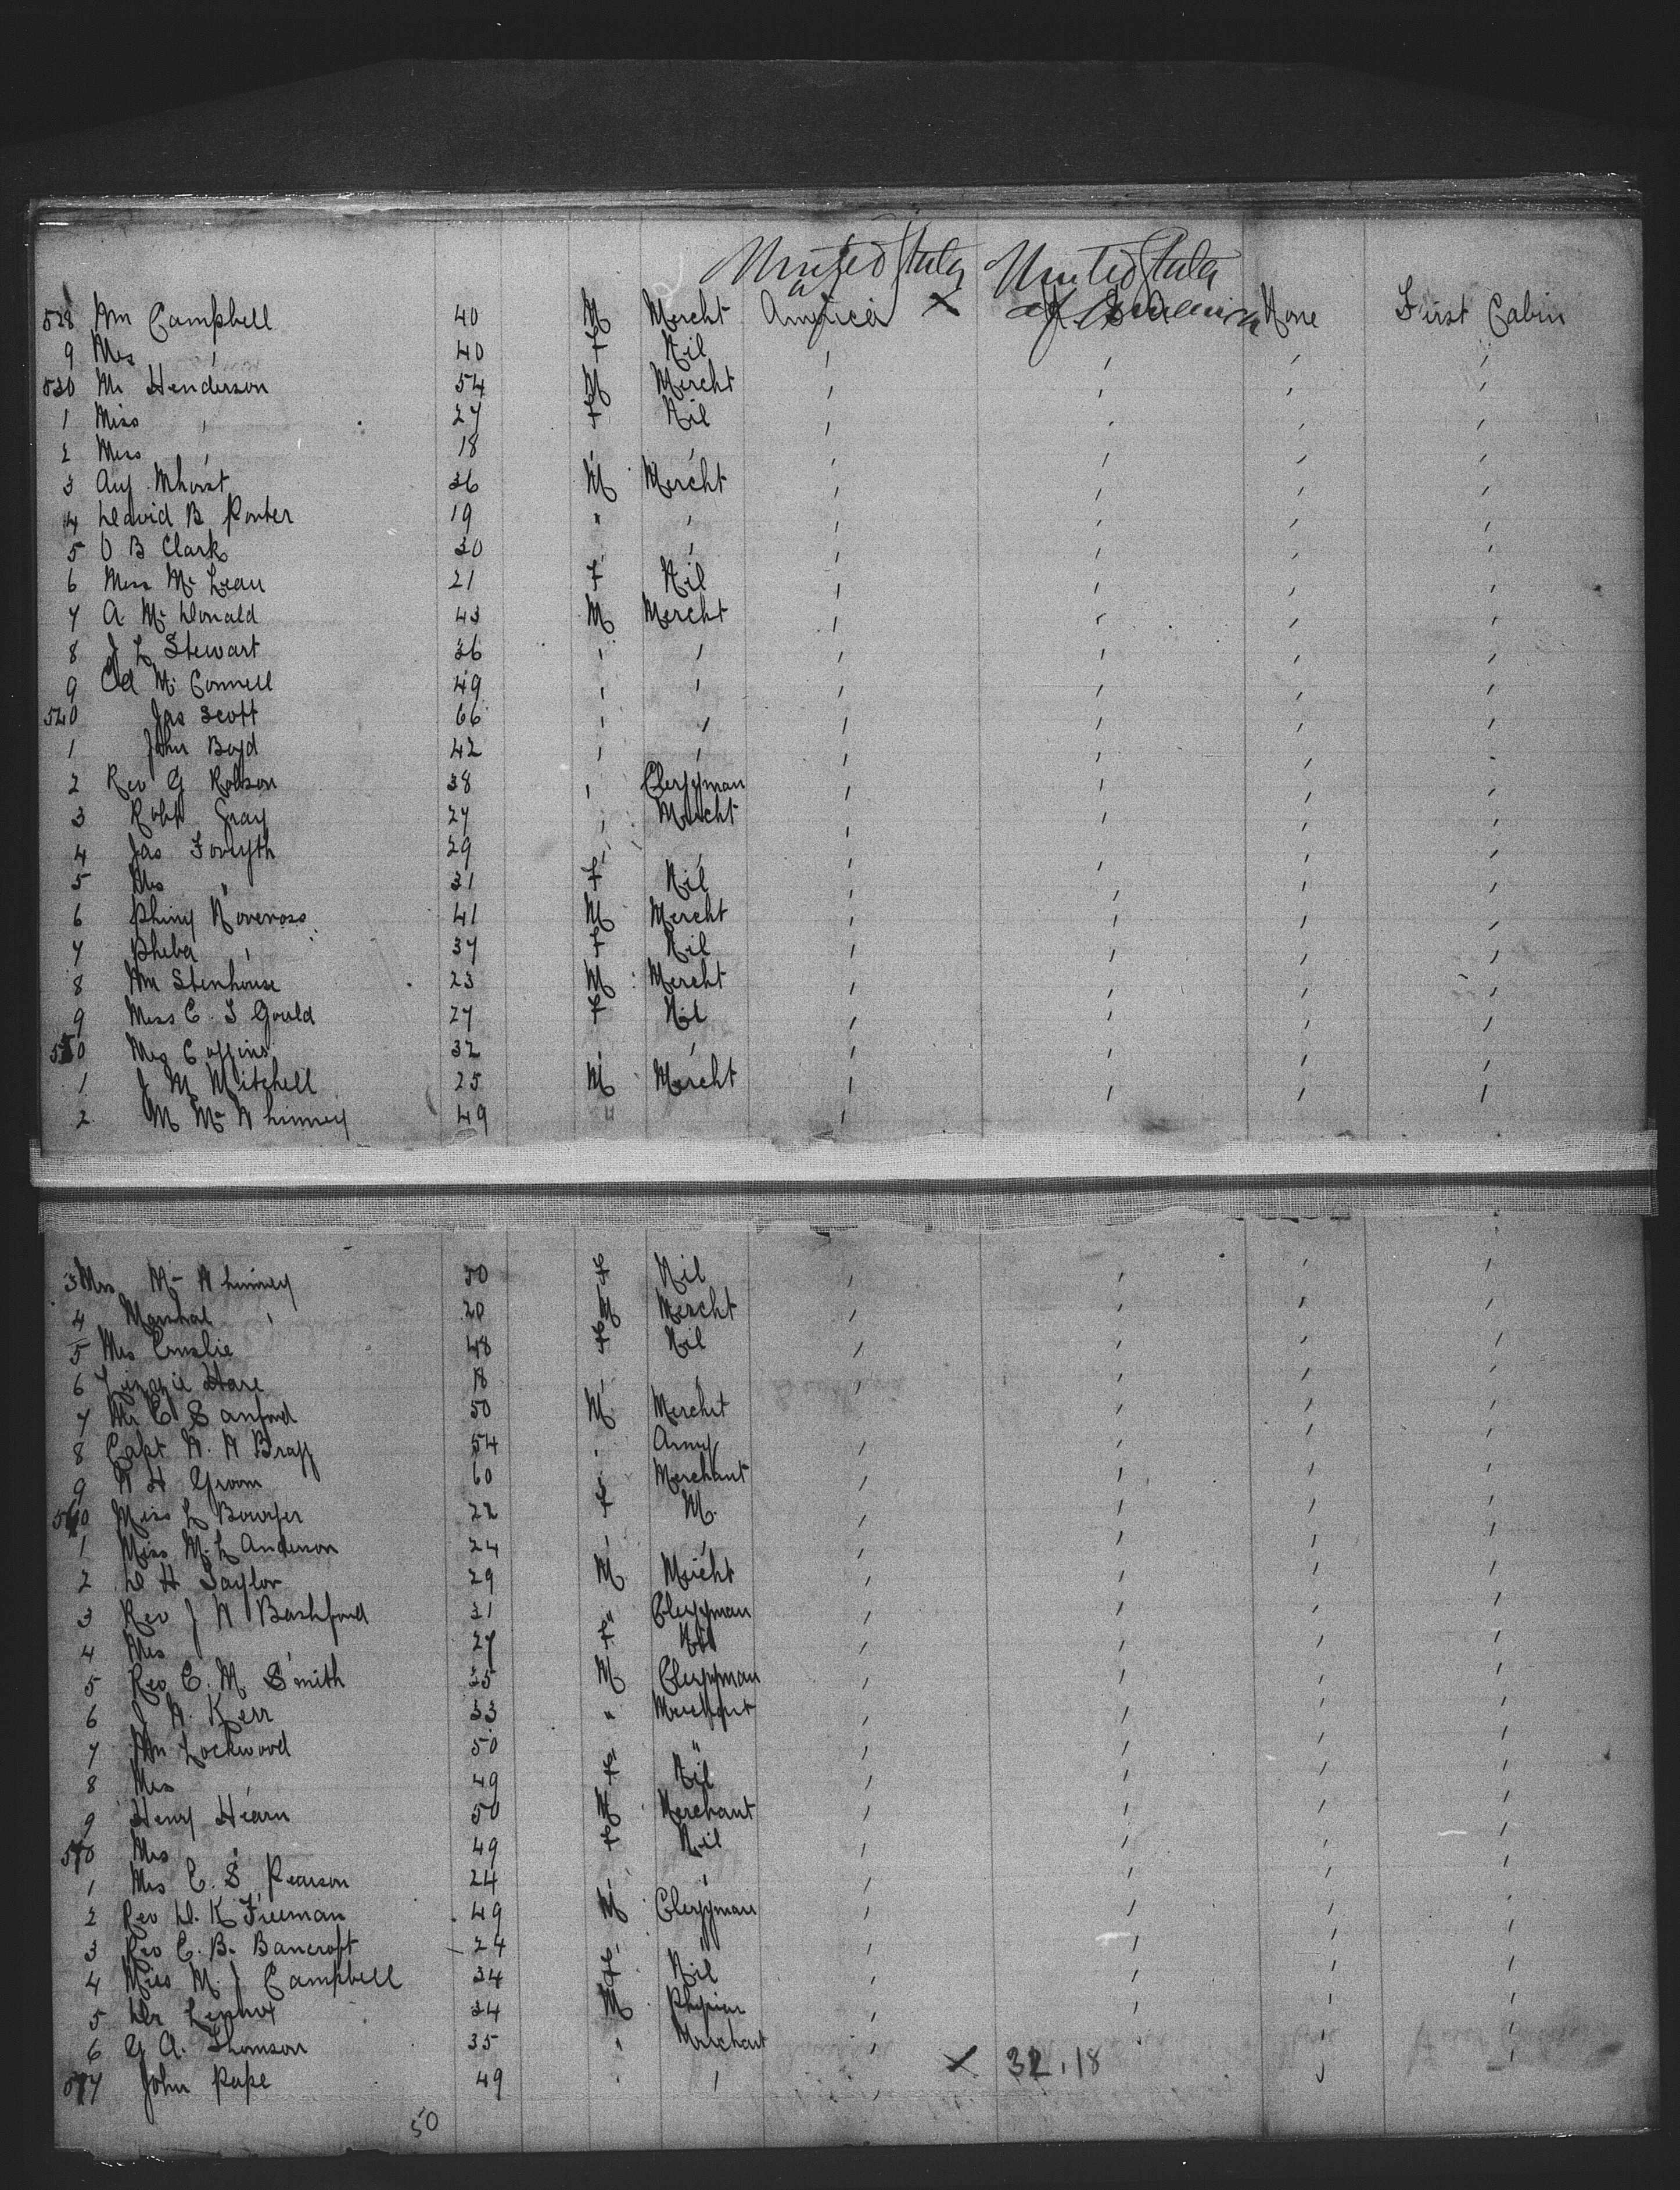 United States United States
528 Wm Campbell 40 M Mercht America X of America None First Cabin
9 Mrs " 40 F Nil " " " "
530 Mr Henderson 54 M Mercht " " " "
1 Miss " 27 F Nil " " " "
2 Miss " 18 " " " " " "
3 Aug Mhorst 36 M Mercht " " " "
4 David B Porter 19 " " " " " "
5 O B Clark 30 " " " " " "
6 Miss Mc Lean 21 F Nil " " " "
7 A Mc Donald 43 M Mercht " " " "
8 J L Stewart 36 " " " " " "
9 Ed Mc Connell 49 " " " " " "
540 Jas Scott 66 " " " " " "
1 John Boyd 42 " " " " " "
2 Rev G Robson 38 " Clergyman " " " "
3 Robt Gray 27 " Mercht " " " "
4 Jas Forsyth 29 " " " " " "
5 Mrs " 31 F Nil " " " "
6 Phiny 41 M Mercht " " " "
7 Pheba " 37 F Nil " " " "
8 Wm Stenhouse 23 M Mercht " " " "
9 Miss C. S Gould 27 F Nil " " " "
550 Mrs Coffins 32 " " " " " "
1 J M Mitchell 25 M Mercht " " " "
2 M Mc Whinney 49 " "
3 Mrs Mc Whinney 50 F Nil " " " "
4 Marshal " 20 M Mercht " " " "
5 Mrs Emslie 48 F Nil " " " "
6 Lizzie Hare 18 " " " " " "
7 Mr E Sanford 50 M Mercht " " "
8 Capt W. W Bragg 54 " Army " " " "
9 W H Groom 60 " Merchant " " " "
560 Miss L 22 F " " " "
1 Miss M. L Anderson 24 " " " " " "
2 D H Taylor 29 M Mercht " " " "
3 Rev J W Bashford 31 " Clergyman " " " "
4 Mrs " 27 F Nil " " " "
5 Rev C. M. Smith 35 M Clergyman " " " "
6 J W. Kerr 33 " Merchant " " " "
7 Wm Lockwood 50 " " " " " "
8 Mrs " 49 F Nil " " " "
9 Henry Hearn 50 M Merchant " " " "
570 Mrs " 49 F Nil " " " "
1 Mrs C. S. Pearson 24 " " " " " "
2 Rev D. K Freeman 49 M Clergyman " " " "
3 Rev C. B. Bancroft 24 " " " " " "
4 Miss M. J Campbell 34 F Nil " " " "
5 Dr Lennox 34 M " " " "
6 G A. Thomson 35 " Merchant " " "
577 John Pape 49 " " " X 32.18 "
50